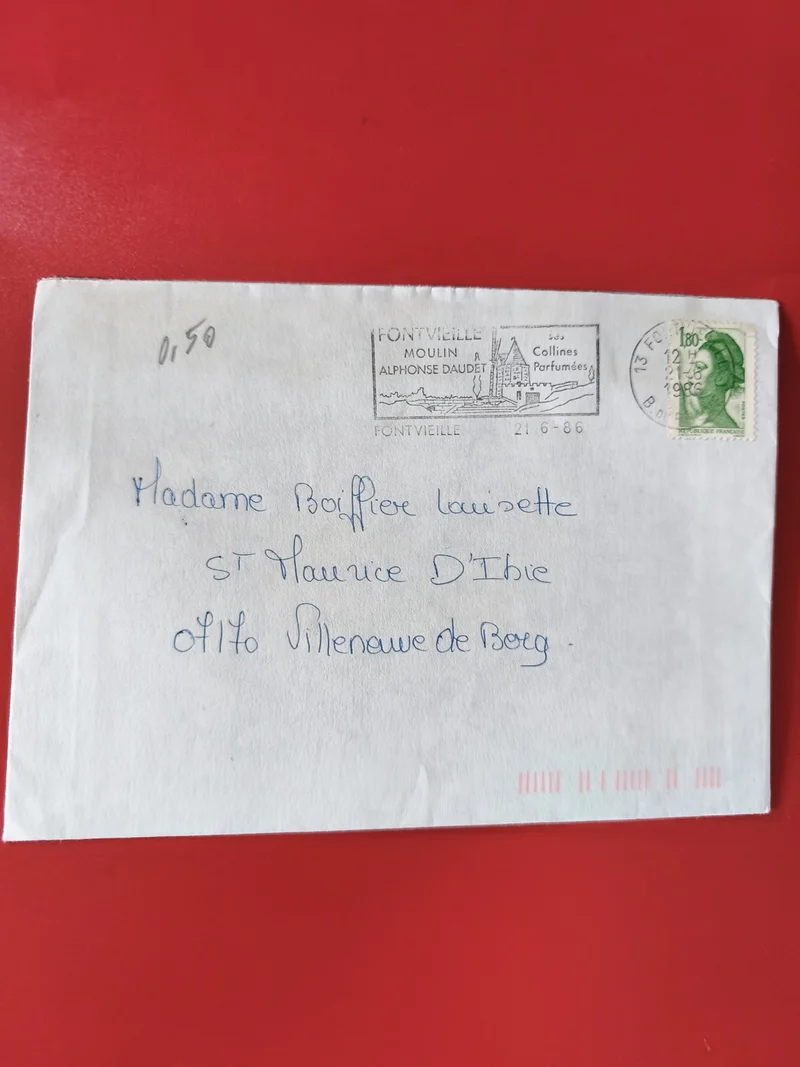 0,50
FONTVIEILLE
MOULIN
ALPHONSE DAUDET
ses
Collines
Parfumées
FONTVIEILLE 21 6-86
13 FO
12 H
21-6
1986
B.D
1,80
REPUBLIQUE FRANÇAISE
Madame Boiffier Louisette
ST Maurice D'Ibie
07170 Villeneuve de Berg.